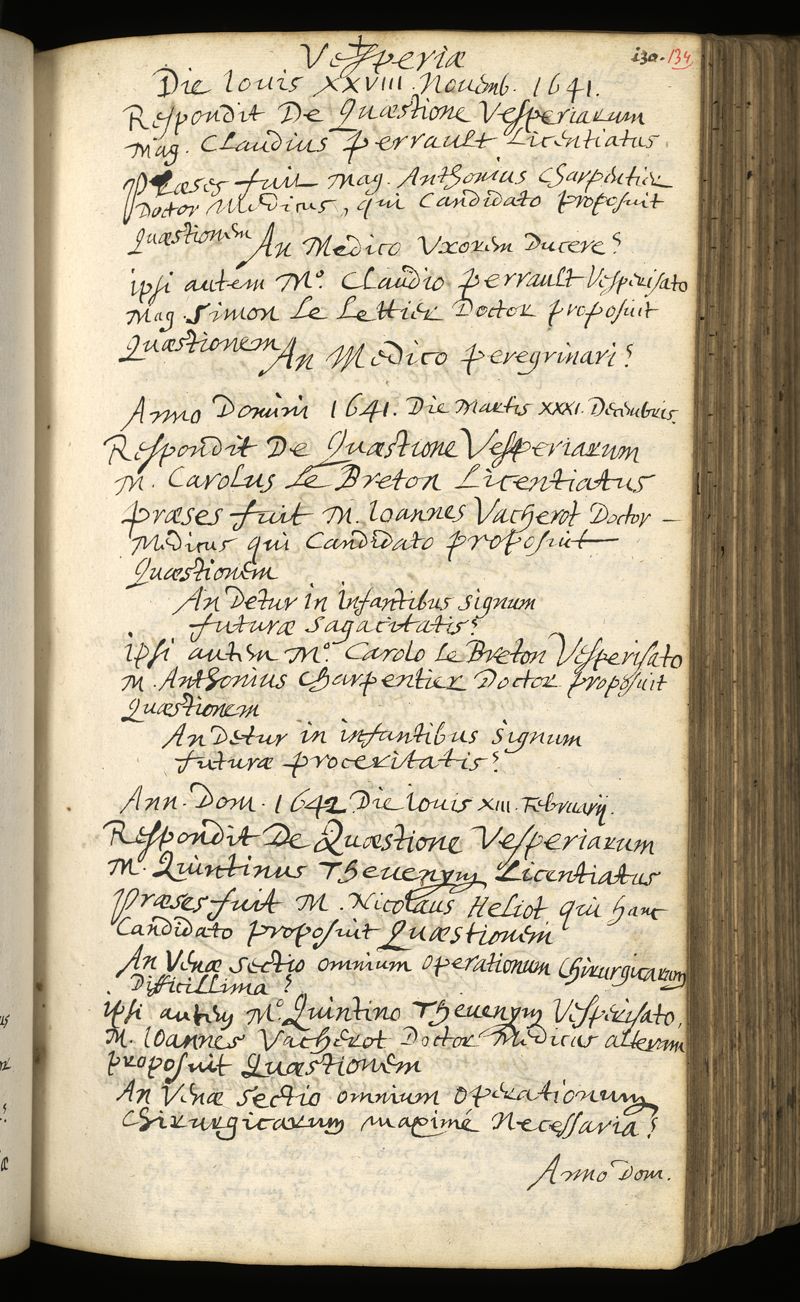 130. 134
Vesperiæ
Die Iovis XXVIII. Novemb. 1641.
Respondit De Quæstione Vesperiarum
Mag. Claudius Perrault Licentiatus.
Præses fuit Mag. Anthonius Charpentier
Doctor Medicus, qui Candidato proposuit
Quæstionem
An Medico Vxorem Ducere?
ipsi autem M.° Claudio Perrault Vesperisato
Mag. Simon Le Lettier Doctor proposuit
Quæstionem
An Medico peregrinari?
Anno Domini 1641. Die Martis XXXI. Decembris.
Respondit De Quæstione Vesperiarum
M. Carolus Le Breton Licentiatus
Præses fuit M. Ioannes Vacherot Doctor —
Medicus qui Candidato proposuit
Quæstionem
An Detur in Infantibus signum
futuræ sagacitatis?
ipsi autem M.° Carolo Le Breton Vesperisato
M. Anthonius Charpentier Doctor proposuit
Quæstionem
An Detur in infantibus signum
futuræ proceritatis?
Ann. Dom. 1642 Die Iovis XIII. Februarij.
Respondit De Quæstione Vesperiarum
M. Quintinus Thevenym Licentiatus
Præses fuit M. Nicolaus Heliot qui hanc
Candidato proposuit Quæstionem
An Venæ sectio omnium operationum Chirurgicarum
Difficillima?
ipsi autem M.° Quintino Thevenym Vesperisato,
M. Ioannes Vacherot Doctor Medicus alteram
proposuit Quæstionem
An Venæ sectio omnium operationum
Chirurgicarum maximé Necessaria?
Anno Dom.